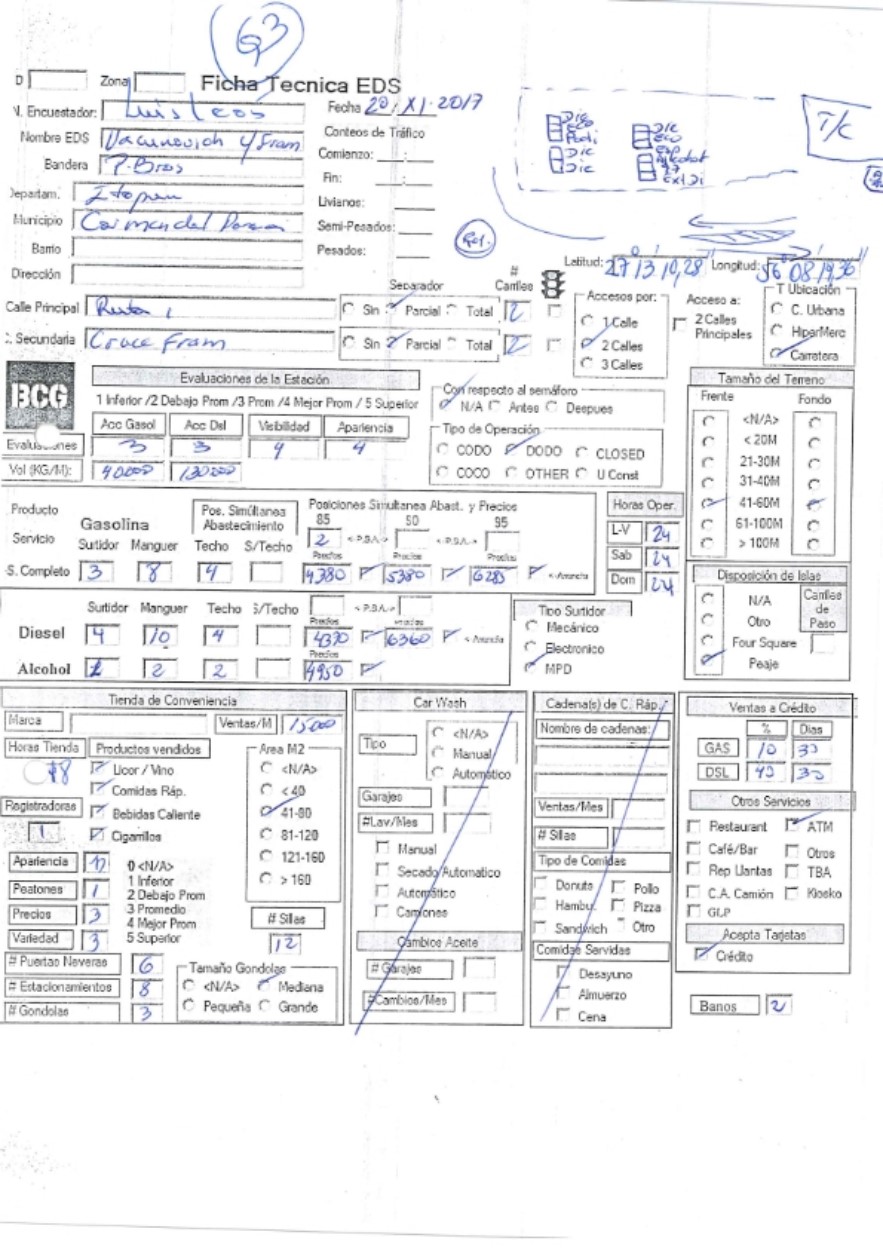 63
D Zona Ficha Tecnica EDS
N. Encuestador: Luis Leos Fecha 20/XI-2017
Nombre EDS y Fram Conteos de Tráfico
Bandera P. Bras Comienzo: :
Fin: :
Departam. Itapua Livianos:
Municipio Carmen del Parana Semi-Pesados:
Barrio Pesados:
Dirección
T/C
Ref.
Latitud: 27 13 10,28 Longitud: 56 08 19,36
Calle Principal Ruta 1
C. Secundaria Cruce Fram
Separador # Carriles
Sin Parcial Total 2
Sin Parcial Total 2
Accesos por:
1 Calle
2 Calles
3 Calles
Acceso a:
2 Calles Principales
T Ubicación
C. Urbana
HiperMerc
Carretera
BCG
Evaluaciones de la Estación
1 Inferior /2 Debajo Prom /3 Prom /4 Mejor Prom / 5 Superior
Acc Gasol Acc Dsl Visibilidad Apariencia
Evaluaciones 3 3 4 4
Vol (KG/M): 40000 130000
Con respecto al semáforo
N/A Antes Despues
Tipo de Operación
CODO DODO CLOSED
COCO OTHER U Const
Tamaño del Terreno
Frente Fondo
<N/A>
< 20M
21-30M
31-40M
41-60M
61-100M
> 100M
Producto Gasolina
Servicio Surtidor Manguer
Pos. Simúltanea Abastecimiento
Techo S/Techo
Posiciones Simultanea Abast. y Precios
85 50 95
2 <-P.S.A.-> <-P.S.A.->
Precios Precios Precios
S. Completo 3 8 4 4380 5380 6285
Horas Oper.
L-V 24
Sab 24
Dom 24
Surtidor Manguer Techo S/Techo <-P.S.A.->
Diesel 4 10 4 4390 6360
Precios
Alcohol 2 2 4950
Tipo Surtidor
Mecánico
Electronico
MPD
Disposición de Islas
N/A
Otro
Four Square
Peaje
Carriles de Paso
Tienda de Conveniencia
Marca Ventas/M 15000
Horas Tienda 18
Productos vendidos
Licor / Vino
Comidas Ráp.
Bebidas Caliente
Cigarrillos
Registradoras 1
Area M2
<N/A>
< 40
41-80
81-120
121-160
> 160
Apariencia
Peatones 1
Precios 3
Variedad 3
0 <N/A>
1 Inferior
2 Debajo Prom
3 Promedio
4 Mejor Prom
5 Superior
# Sillas
12
# Puertas Neveras 6
# Estacionamientos 8
# Gondolas 3
Tamaño Gondolas
<N/A> Mediana
Pequeña Grande
Car Wash
Tipo
<N/A>
Manual
Automático
Garajes
#Lav/Mes
Manual
Secado Automatico
Automático
Camiones
Cambios Aceite
# Garajes
#Cambios/Mes
Cadena(s) de C. Ráp.
Nombre de cadenas:
Ventas/Mes
# Sillas
Tipo de Comidas
Donuts Pollo
Hambu. Pizza
Sandwich Otro
Comidas Servidas
Desayuno
Almuerzo
Cena
Ventas a Crédito
% Dias
GAS 10 30
DSL 40 30
Otros Servicios
Restaurant ATM
Café/Bar Otros
Rep Llantas TBA
C.A. Camión Kiosko
GLP
Acepta Tarjetas
Crédito
Banos 2